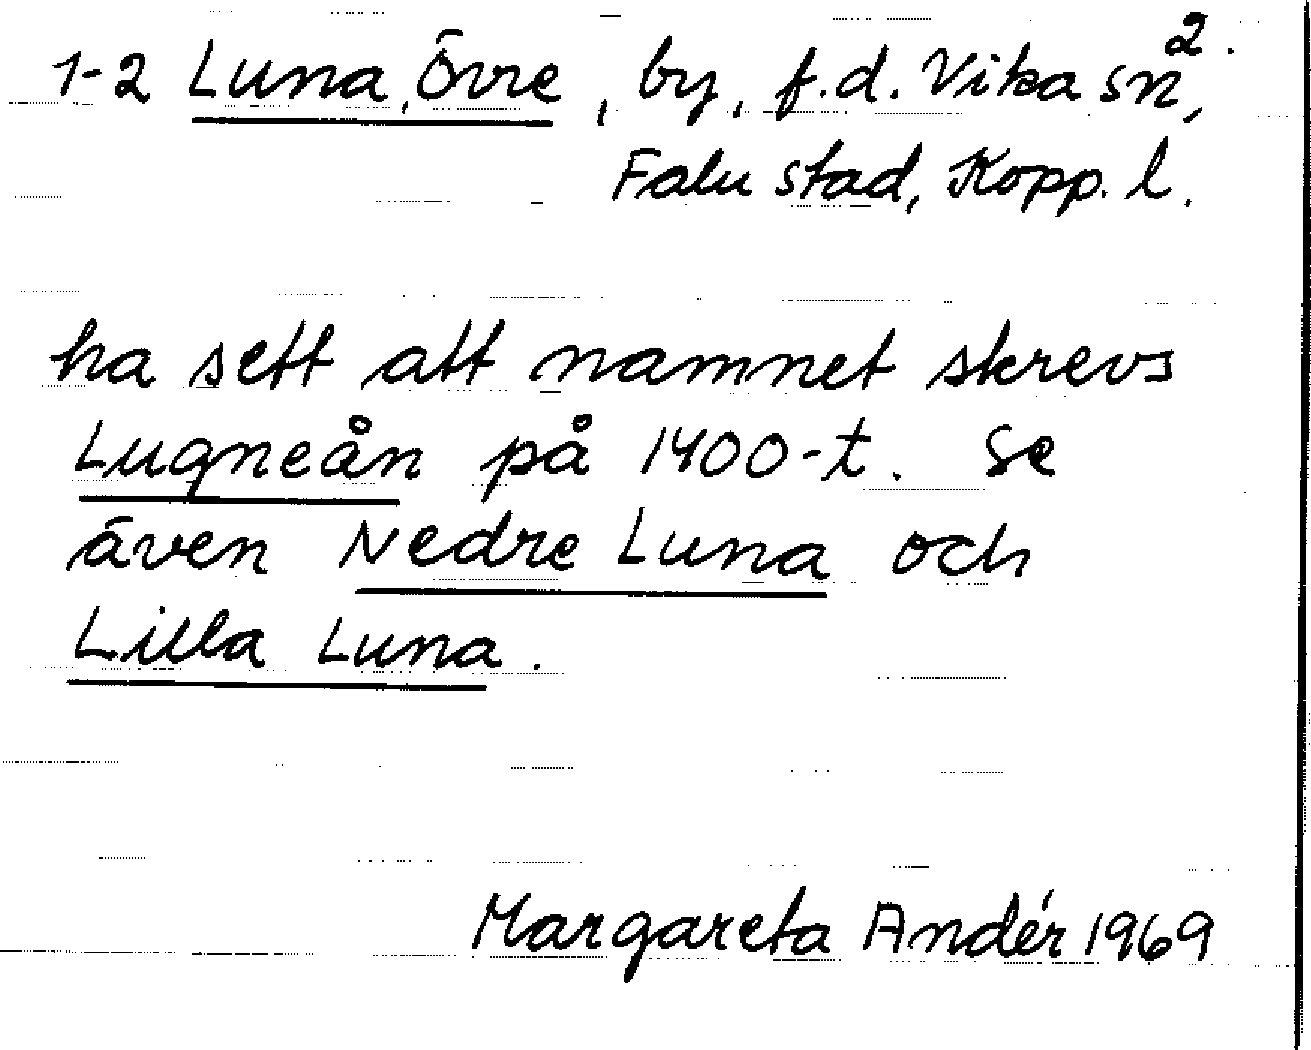 2.
1-2 Luna, Övre, by, f.d. Vika sn,
Falu stad, Kopp. l.
ha sett att namnet skrevs
Lugneån på 1400-t. Se
även Nedre Luna och
Lilla Luna.
Margareta Andér 1969